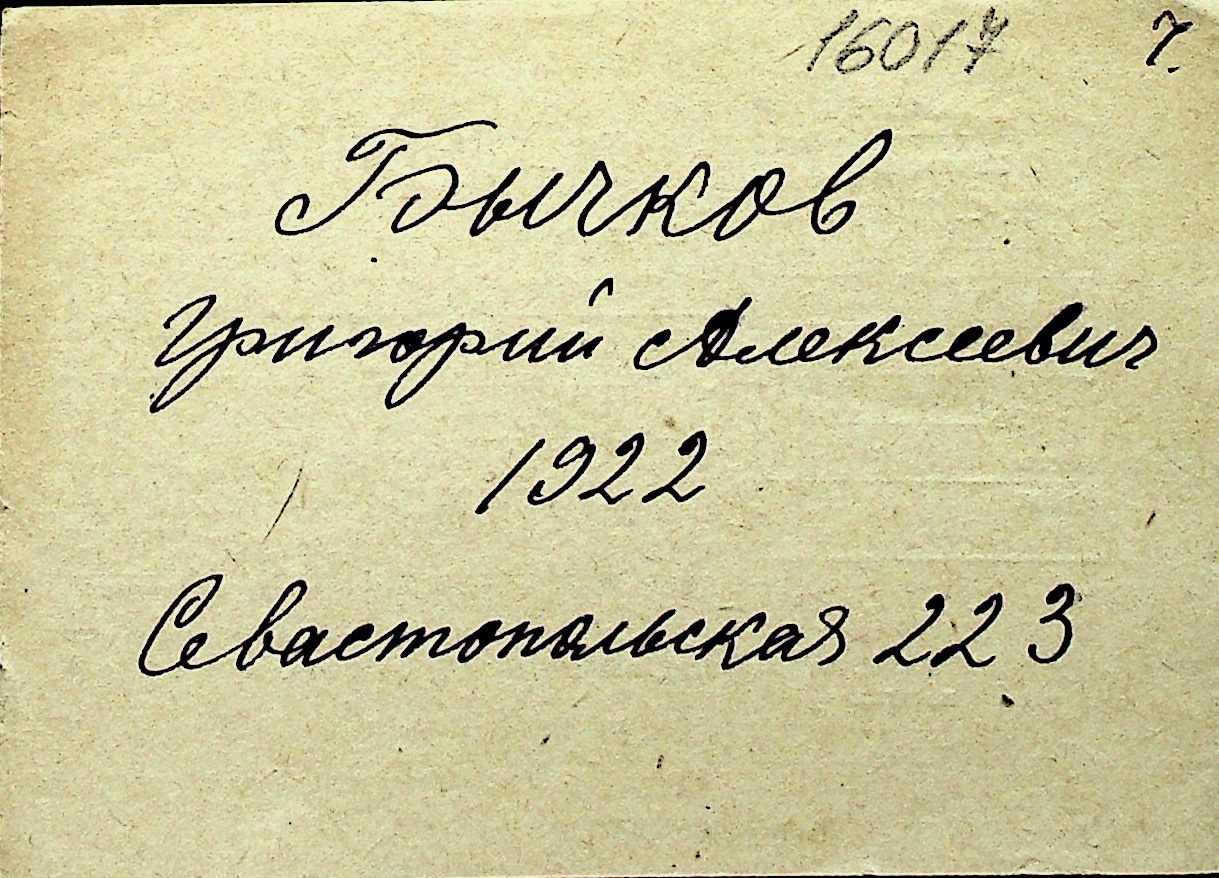 16017 7.
Бычков
Григорий Алексеевич
1922
Севастопольская 223